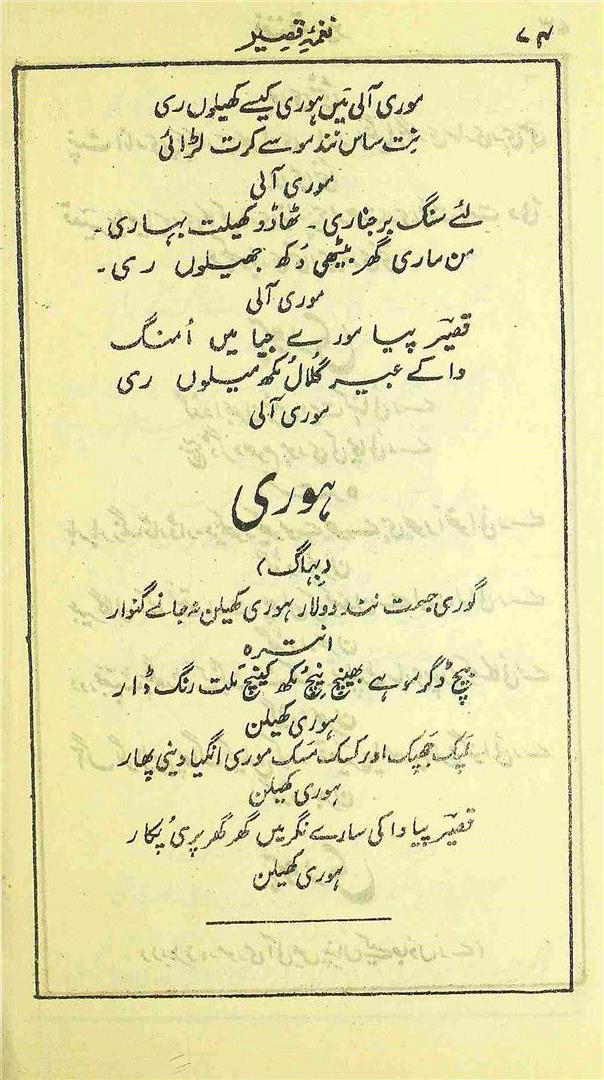 نغمۂ قصیر
۷۴
موری آلی میں ہوری کیسے کھیلوں ری
نِت ساس نند مو سے کرت لڑائی
موری آلی
لئے سنگ برجناری ۔ ٹھاڈو کھیلت بہاری ۔
من ماری گھر بیٹھی دُکھ جھیلوں ری ۔
موری آلی
قصیر پیا مورے جیا میں اُمنگ
وا کے عبیر گلال مُکھ میلوں ری
موری آلی
ہوری
(بہاگ)
گوری جمت نند دولار ہوری کھیلن نہ جانے گنوار
انترہ
بیچ ڈگر موہے بھینچ نیچ مُکھ کینچ مَلت رنگ ڈار
ہوری کھیلن
لپک جھپک اور کسک مسک موری انگیا دینی پھار
ہوری کھیلن
قصیر پیا وا کی سارے نگر میں گھر گھر پری پکار
ہوری کھیلن